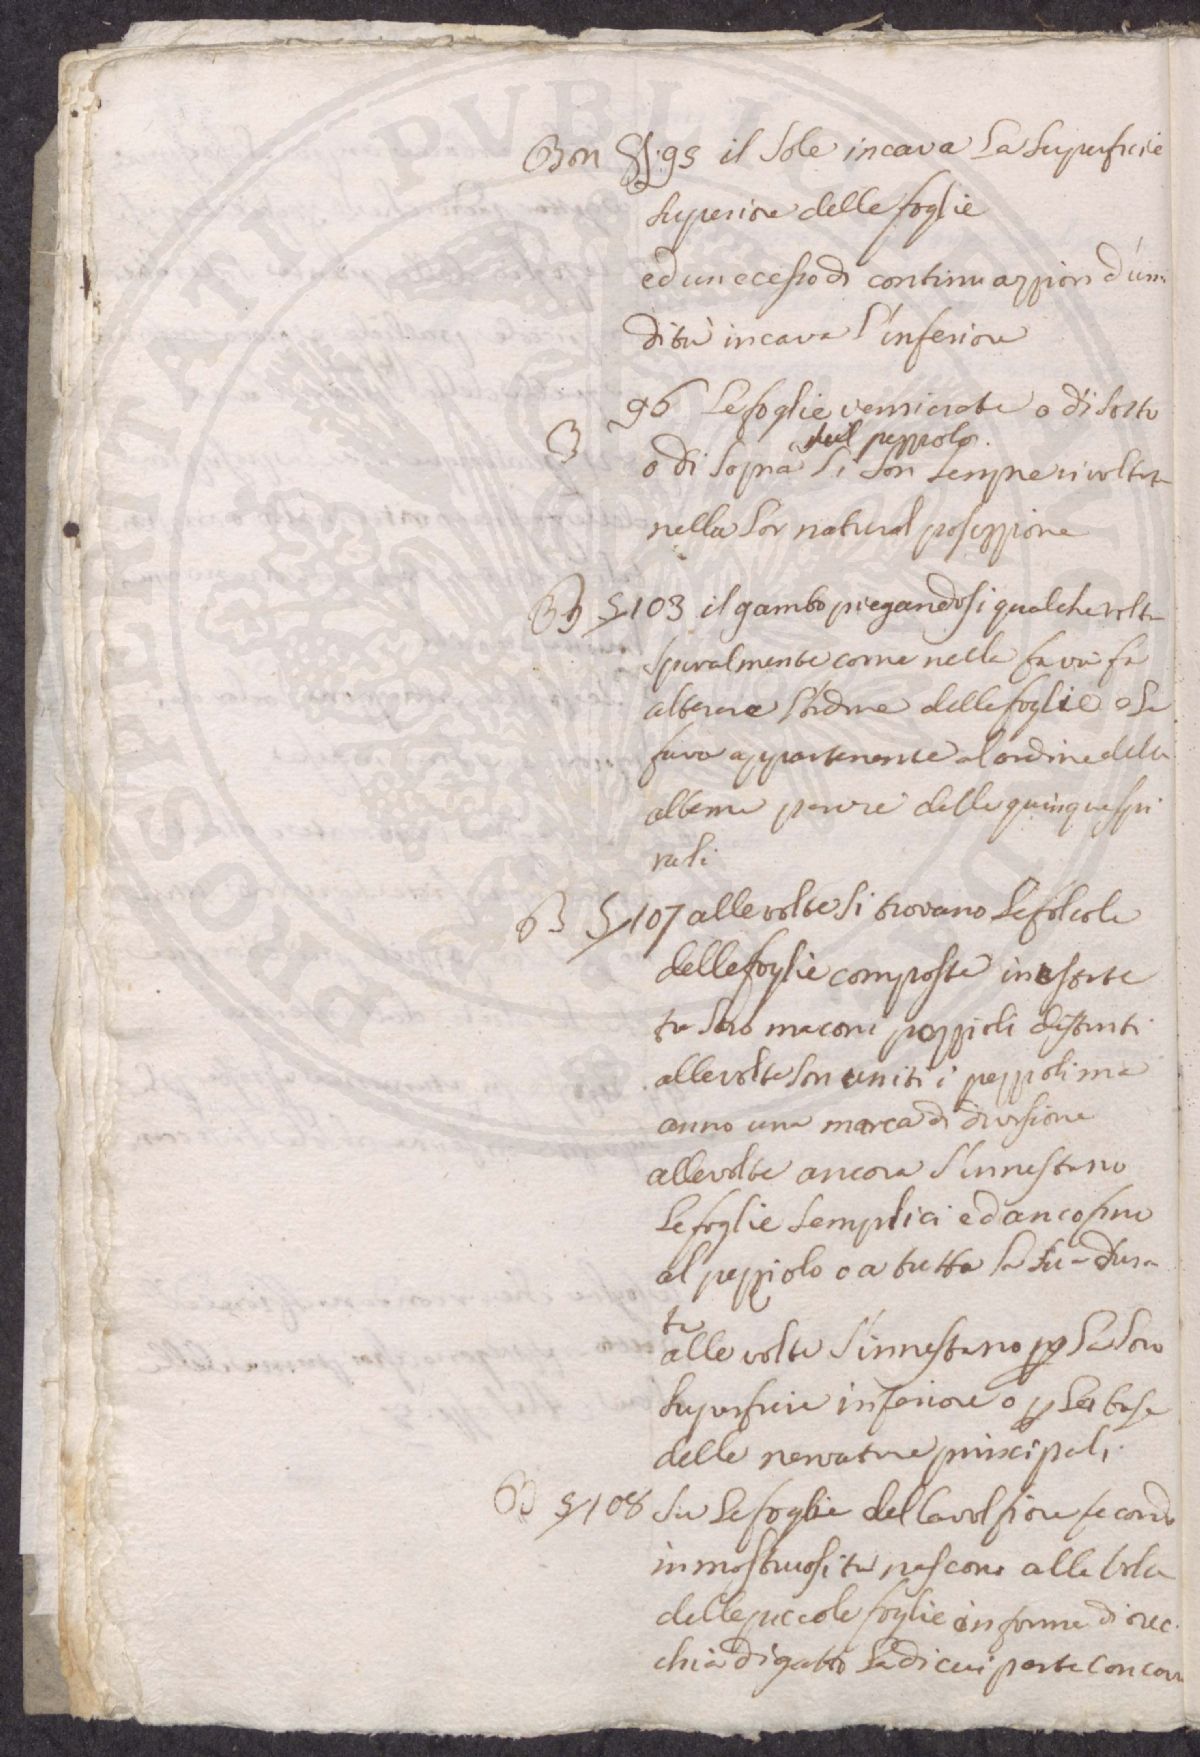 Bon §§.95 il Sole incava La Superficie
Superiore delle foglie
ed un ecesso di continuazzion d'umi
dità incava l'inferiore
96 Le foglie verniciate o di sotto
B
sul pezziolo.
o di sopra si son sempre rivoltate
nella lor natural posizzione
B §103 il gambo piegandosi qualche volta
spiralmente come nella fava fa
alterare l'ordine delle foglie e La
fava appartenente al ordine delle
alterne parere delle quinquespi
rali
B §107 alle volte si trovano Le foliole
delle foglie composte inestate
tra loro ma con i pezzioli distinti
alle volte son uniti i pezzioli ma
anno una marca di divisione
alle volte ancora s'innestano
Le foglie semplici ed anco fino
al pezziolo o a tutta la sua dura
ta
alle volte s'innestano p La loro
superficie inferiore o p La base
delle nervature principali.
B §108 Su Le foglie del Cavolfiore fecondo
in mostruosità nascono alle volte
delle piccole foglie in forma di orec
chia di gatto La di cui parte concava